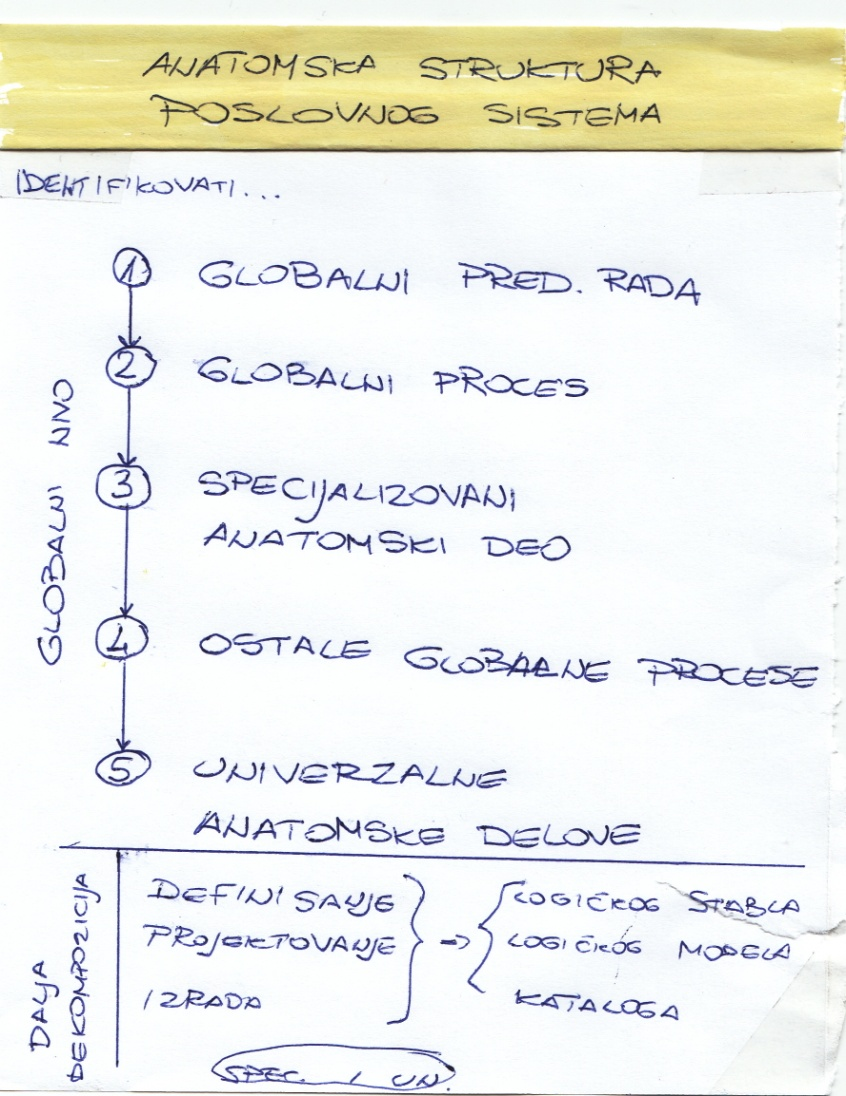 ANATOMSKA STRUKTURA
POSLOVNOG SISTEMA
IDENTIFIKOVATI...
1 GLOBALNI PRED. RADA
2 GLOBALNI PROCES
3 SPECIJALIZOVANI
ANATOMSKI DEO
4 OSTALE GLOBALNE PROCESE
5 UNIVERZALNE
ANATOMSKE DELOVE
GLOBALNI NIVO
DALJA
DEKOMPOZICIJA
DEFINISANJE
PROJEKTOVANJE
IZRADA
=>
LOGIČKOG STABLA
LOGIČKOG MODELA
KATALOGA
SPEC. I UN.